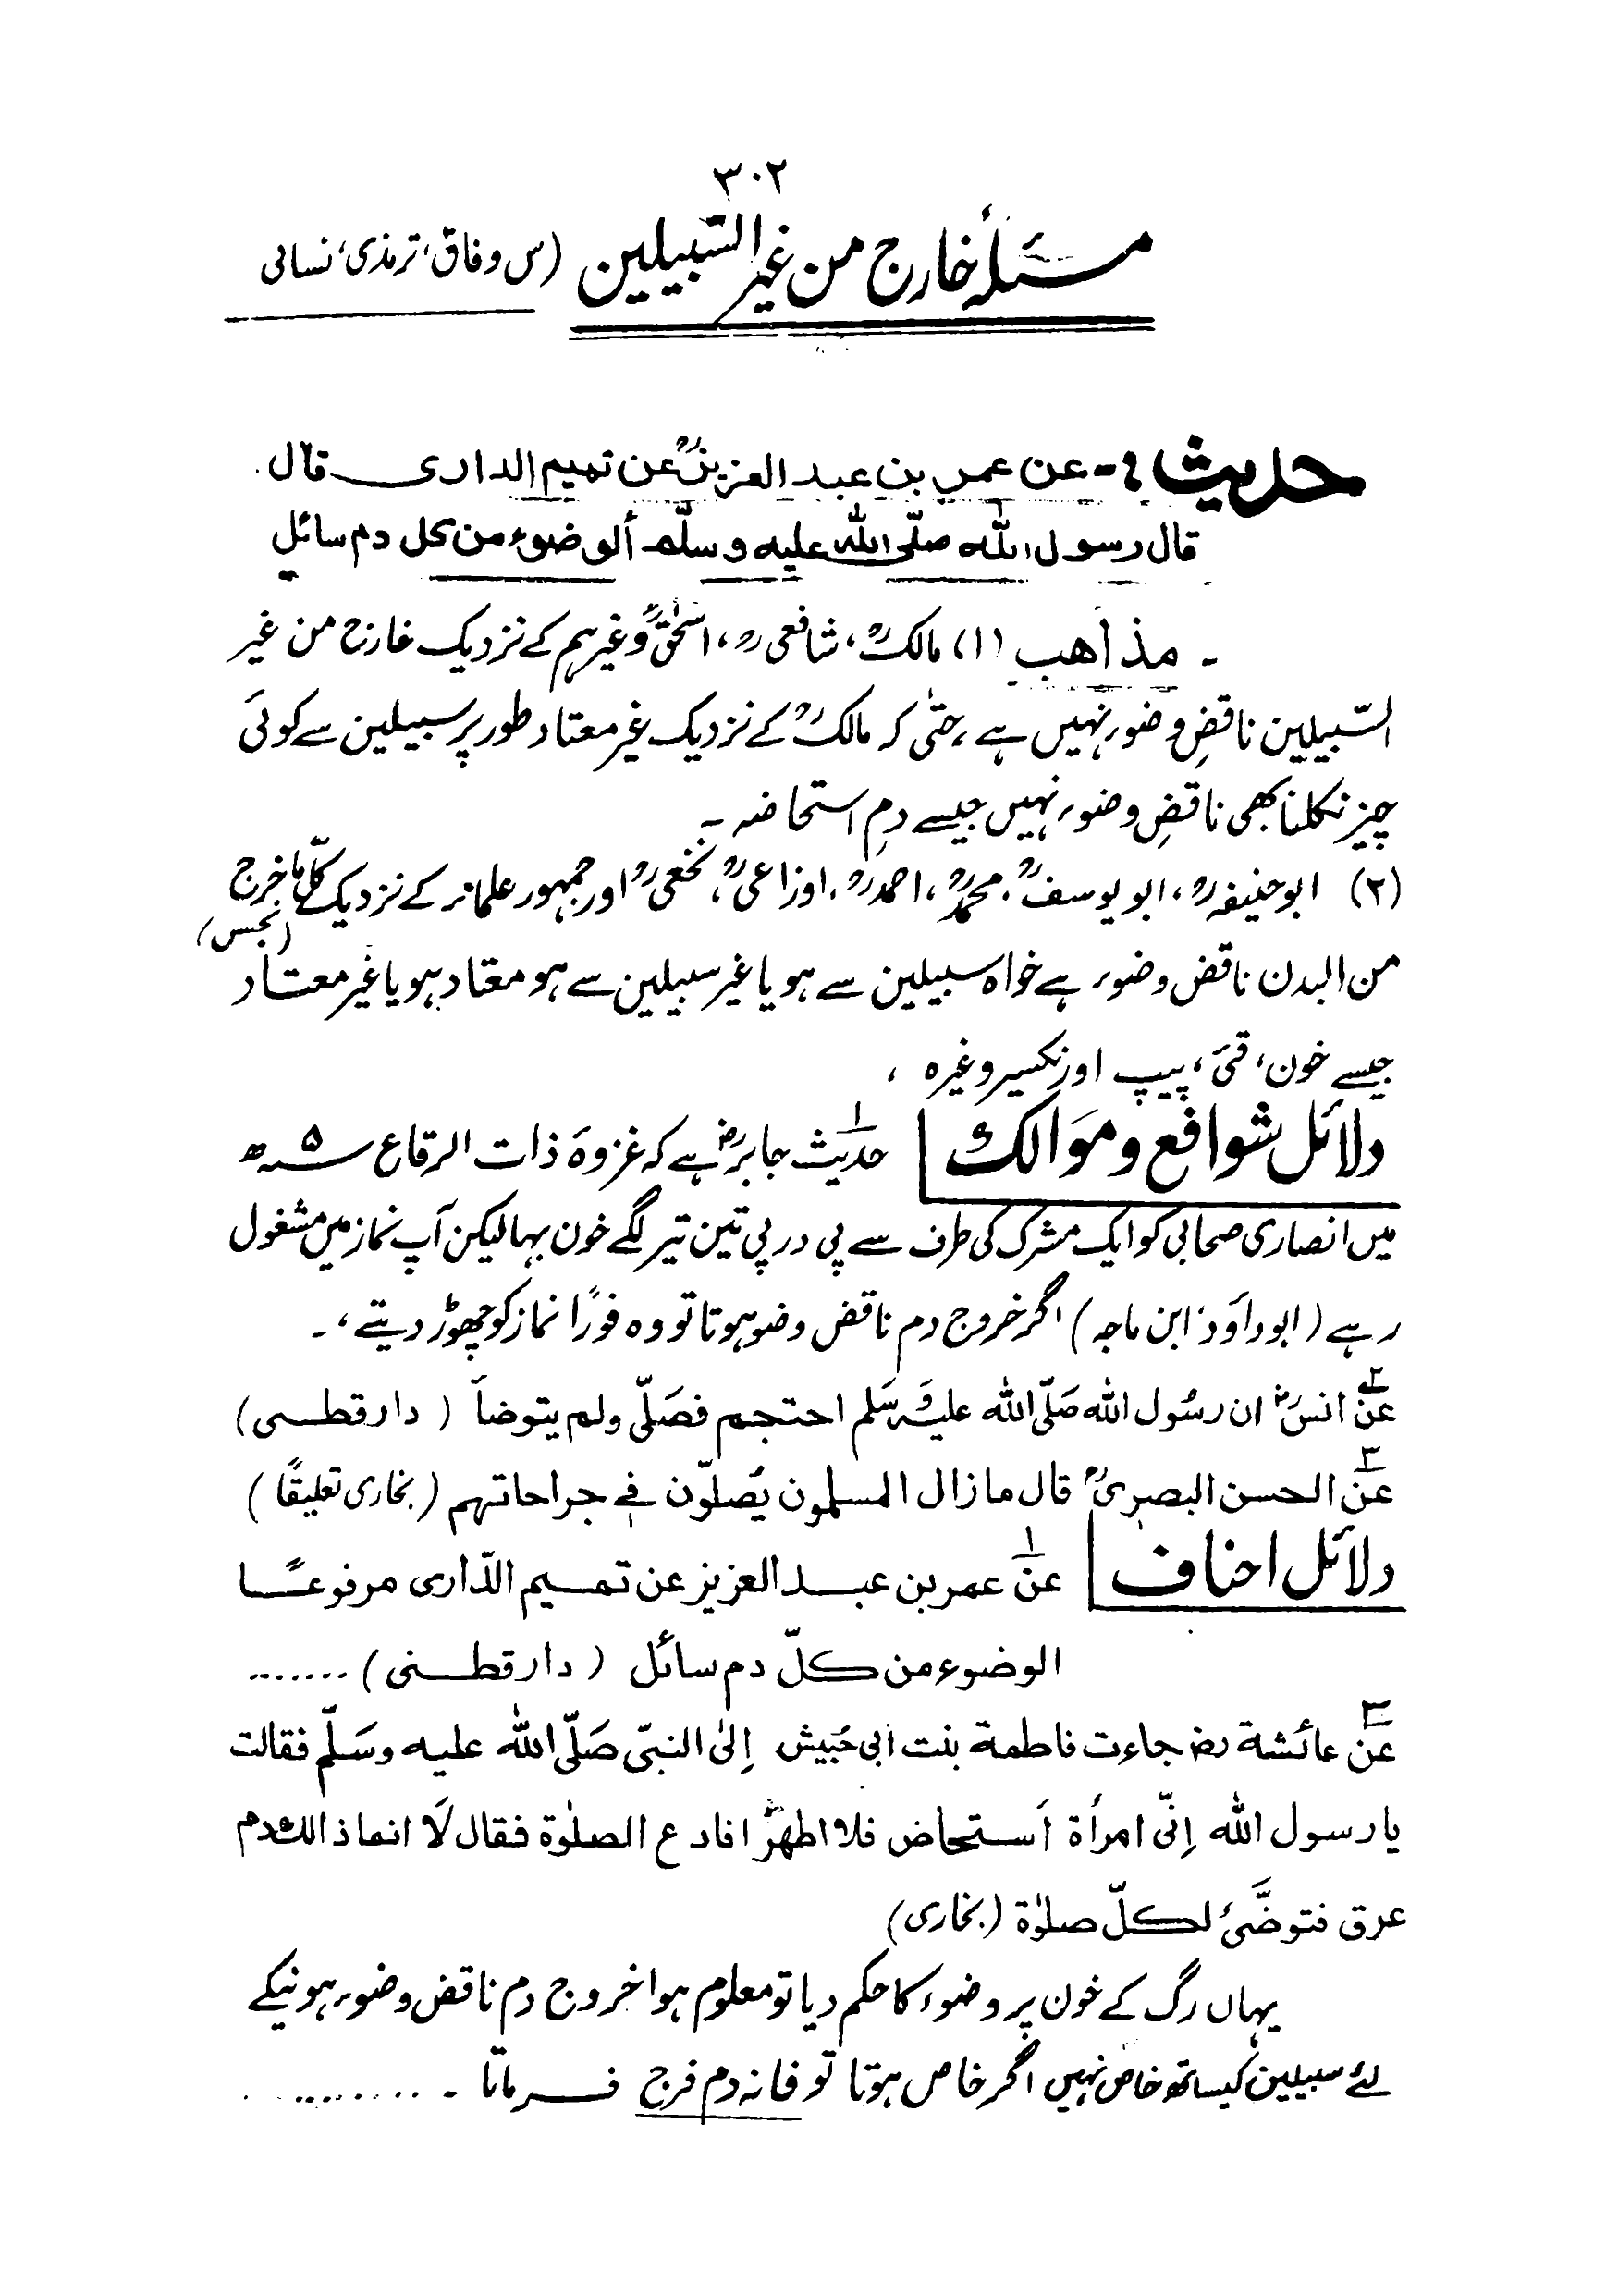 ۳۰۲
مسئلۂ خارج من غیر السّبیلین (س وفاق، ترمذی، نسائی
حدیث :- عن عمر بن عبد العزیزؒ عن تمیم الداری قال
قال رسول اللہ صلّی اللہ علیہ وسلّم ألوضوء من کل دم سائل
۔ مذاھب (۱) مالکؒ، شافعیؒ، اسحٰقؒ وغیرہم کے نزدیک خارج من غیر
السّبیلین ناقضِ وضوء نہیں ہے، حتّٰی کہ مالکؒ کے نزدیک غیر معتاد طور پر سبیلین سے کوئی
چیز نکلنا بھی ناقضِ وضوء نہیں جیسے دمِ استحاضہ ۔
(۲) ابوحنیفہؒ، ابو یوسفؒ، محمدؒ، احمدؒ، اوزاعیؒ، نخعیؒ اور جمہور علماء کے نزدیک کلّ ما خرج
(نجس)
من البدن ناقض وضوء ہے خواہ سبیلین سے ہو یا غیر سبیلین سے ہو معتاد ہو یا غیر معتاد
جیسے خون، قئ، پیپ اور نکسیر وغیرہ ،
دلائل شوافع وموالک ۱ حدیث جابرؓ ہے کہ غزوۂ ذات الرقاع سنہ ۵ھ
میں انصاری صحابی کو ایک مشرک کی طرف سے پی در پی تین تیر لگے خون بہا لیکن آپ نماز میں مشغول
رہے (ابوداؤد، ابن ماجہ) اگر خروج دم ناقض وضو ہوتا تو وہ فورًا نماز کو چھوڑ دیتے ، ۔
۲ عن انسؓ ان رسُول اللہ صَلّی اللہ علیہ وَسَلم احتجم فصَلّی ولم یتوضأ (دارقطنی)
۳ عن الحسن البصریؒ قال ما زال المسلمون یُصلّون فی جراحاتہم (بخاری تعلیقًا)
دلائل احناف ۱ عن عمر بن عبد العزیز عن تمیم الدّاری مرفوعًا
الوضوء من کلّ دم سائل (دارقطنی) .......
۲ عن عائشة رضؓ جاءت فاطمة بنت ابی حُبیش اِلیٰ النبیّ صَلّی اللہ علیہ وسَلّم فقالت
یا رسول اللہ اِنّی امرأة اَستحاض فلا اطھرُ افادع الصلوٰة فقال لَا انما ذالک دم
عرق فتوضَّئ لکلّ صلوٰة (بخاری)
یہاں رگ کے خون پر وضوء کا حکم دیا تو معلوم ہوا خروج دم ناقض وضوء ہونیکے
لئے سبیلین کیساتھ خاص نہیں اگر خاص ہوتا تو فانہ دم فرج فرماتا ۔ ..........